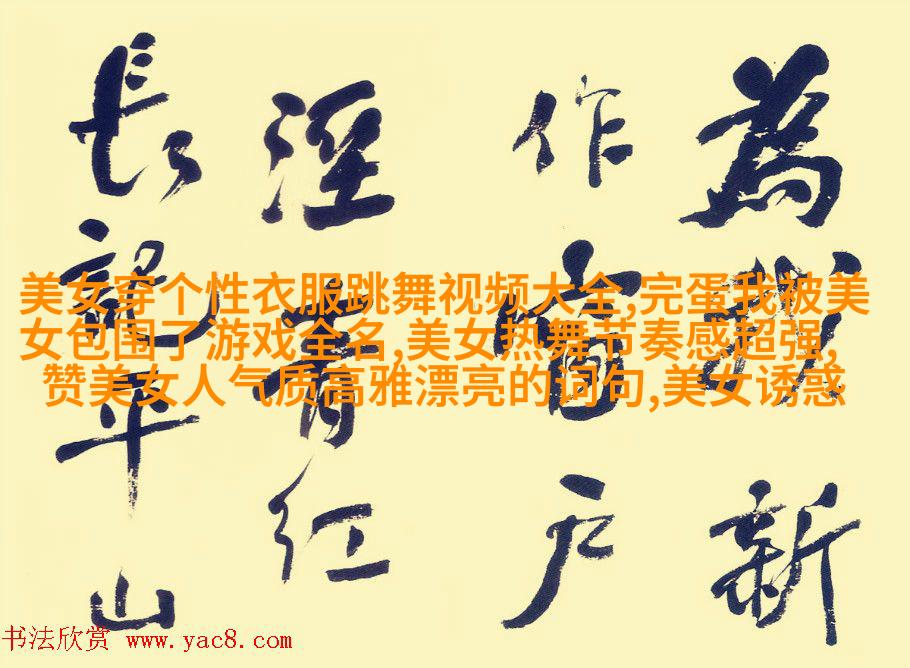 為我新
作窗户
溼青红
長記平山
美女穿个性衣服跳舞视频大全,完蛋我被美
女包围了游戏全名,美女热舞节奏感超强,
赞美女人气质高雅漂亮的词句,美女诱惑
书法欣赏 www.yac8.com